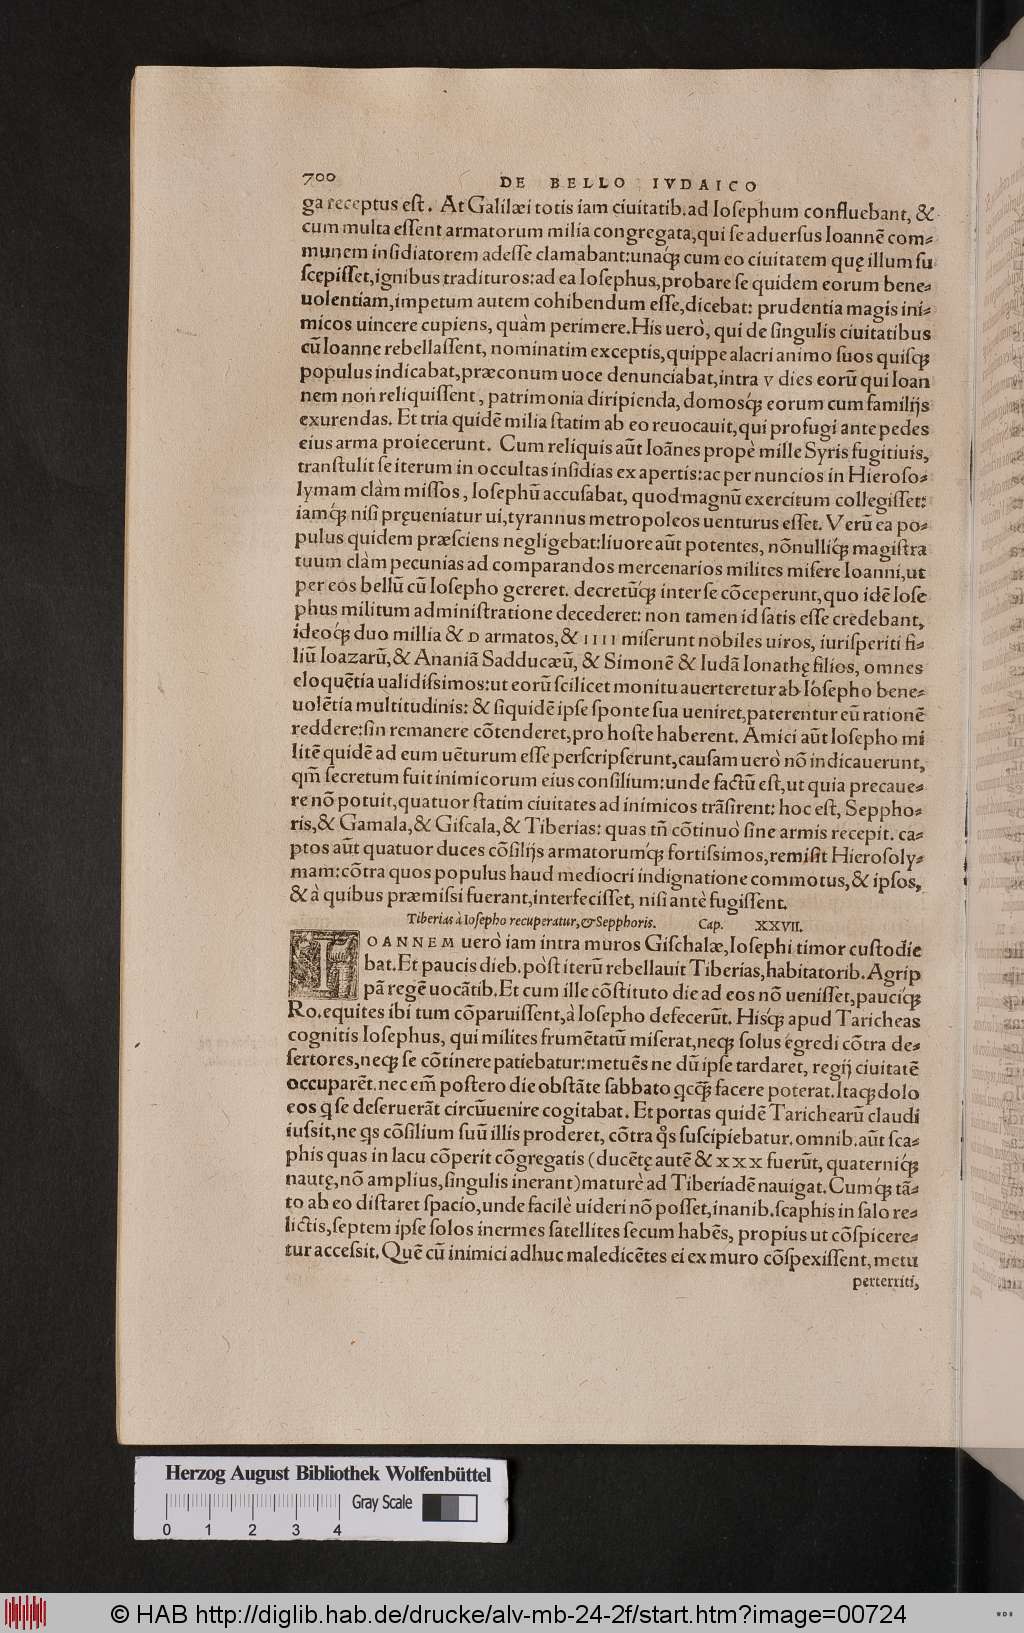 700 DE BELLO IVDAICO
ga receptus eſt. At Galilæi totis iam ciuitatib.ad Ioſephum confluebant, &
cum multa eſſent armatorum milia congregata,qui ſe aduerſus Ioannē com-
munem inſidiatorem adeſſe clamabant:unaq́ꝫ cum eo ciuitatem quę illum ſu
ſcepiſſet,ignibus tradituros:ad ea Ioſephus,probare ſe quidem eorum bene-
uolentiam,impetum autem cohibendum eſſe,dicebat: prudentia magis ini-
micos uincere cupiens, quàm perimere.His uerò, qui de ſingulis ciuitatibus
cū Ioanne rebellaſſent, nominatim exceptis,quippe alacri animo ſuos quiſqꝫ
populus indicabat,præconum uoce denunciabat,intra v dies eorū qui Ioan
nem non reliquiſſent, patrimonia diripienda, domosq́ꝫ eorum cum familijs
exurendas. Et tria quidē milia ſtatim ab eo reuocauit,qui profugi ante pedes
eius arma proiecerunt. Cum reliquis aūt Ioānes propè mille Syris fugitiuis,
tranſtulit ſe iterum in occultas inſidias ex apertis:ac per nuncios in Hieroſo-
lymam clàm miſſos, Ioſephū accuſabat, quod magnū exercitum collegiſſet:
iamq́ꝫ niſi pręueniatur ui,tyrannus metropoleos uenturus eſſet. Verū ea po-
pulus quidem præſciens negligebat:liuore aūt potentes, nōnulliq́ꝫ magiſtra
tuum clàm pecunias ad comparandos mercenarios milites miſere Ioanni,ut
per eos bellū cū Ioſepho gereret. decretūq́ꝫ inter ſe cōceperunt,quo idē Ioſe
phus militum adminiſtratione decederet: non tamen id ſatis eſſe credebant,
ideoq́ꝫ duo millia & D armatos,& IIII miſerunt nobiles uiros, iuriſperiti fi-
liū Ioazarū,& Ananiā Sadducæū, & Simonē & Iudā Ionathę filios, omnes
eloquētia ualidiſsimos:ut eorū ſcilicet monitu auerteretur ab Ioſepho bene-
uolētia multitudinis: & ſiquidē ipſe ſponte ſua ueniret,paterentur eū rationē
reddere:ſin remanere cōtenderet,pro hoſte haberent. Amici aūt Ioſepho mi
litē quidē ad eum uēturum eſſe perſcripſerunt,cauſam uerò nō indicauerunt,
qm̄ ſecretum fuit inimicorum eius conſilium:unde factū eſt,ut quia precaue-
re nō potuit,quatuor ſtatim ciuitates ad inimicos trāſirent: hoc eſt, Seppho-
ris,& Gamala,& Giſcala,& Tiberias: quas tn̄ cōtinuò ſine armis recepit. ca-
ptos aūt quatuor duces cōſilijs armatorumq́ꝫ fortiſsimos,remiſit Hieroſoly-
mam:cōtra quos populus haud mediocri indignatione commotus,& ipſos,
& à quibus præmiſsi fuerant,interfeciſſet, niſi antè fugiſſent.
Tiberias à Ioſepho recuperatur,& Sepphoris. Cap. XXVII.
IOANNEM uerò iam intra muros Giſchalæ,Ioſephi timor cuſtodie
bat.Et paucis dieb.pòſt iterū rebellauit Tiberias,habitatorib.Agrip
pā regē uocātib.Et cum ille cōſtituto die ad eos nō ueniſſet,pauciq́ꝫ
Ro.equites ibi tum cōparuiſſent,à Ioſepho defecerūt. Hisq́ꝫ apud Taricheas
cognitis Ioſephus, qui milites frumētatū miſerat,neqꝫ ſolus egredi cōtra de-
ſertores,neqꝫ ſe cōtinere patiebatur:metuēs ne dū ipſe tardaret, regij ciuitatē
occuparēt.nec em̄ poſtero die obſtāte ſabbato qcq̄ꝫ facere poterat.Itaqꝫ dolo
eos q ſe deſeruerāt circūuenire cogitabat. Et portas quidē Tarichearū claudi
iuſsit,ne qs cōſilium ſuū illis proderet, cōtra q̊s ſuſcipiebatur.omnib.aūt ſca-
phis quas in lacu cōperit cōgregatis (ducētę autē & XXX fuerūt, quaterniq́ꝫ
nautę,nō amplius,ſingulis inerant)maturè ad Tiberiadē nauigat. Cumq́ꝫ tā-
to ab eo diſtaret ſpacio,unde facilè uideri nō poſſet,inanib.ſcaphis in ſalo re-
lictis,ſeptem ipſe ſolos inermes ſatellites ſecum habēs, propius ut cōſpicere-
tur acceſsit. Quē cū inimici adhuc maledicētes ei ex muro cōſpexiſſent, metu
perterriti,
Herzog August Bibliothek Wolfenbüttel
Gray Scale
0 1 2 3 4
© HAB http://diglib.hab.de/drucke/alv-mb-24-2f/start.htm?image=00724